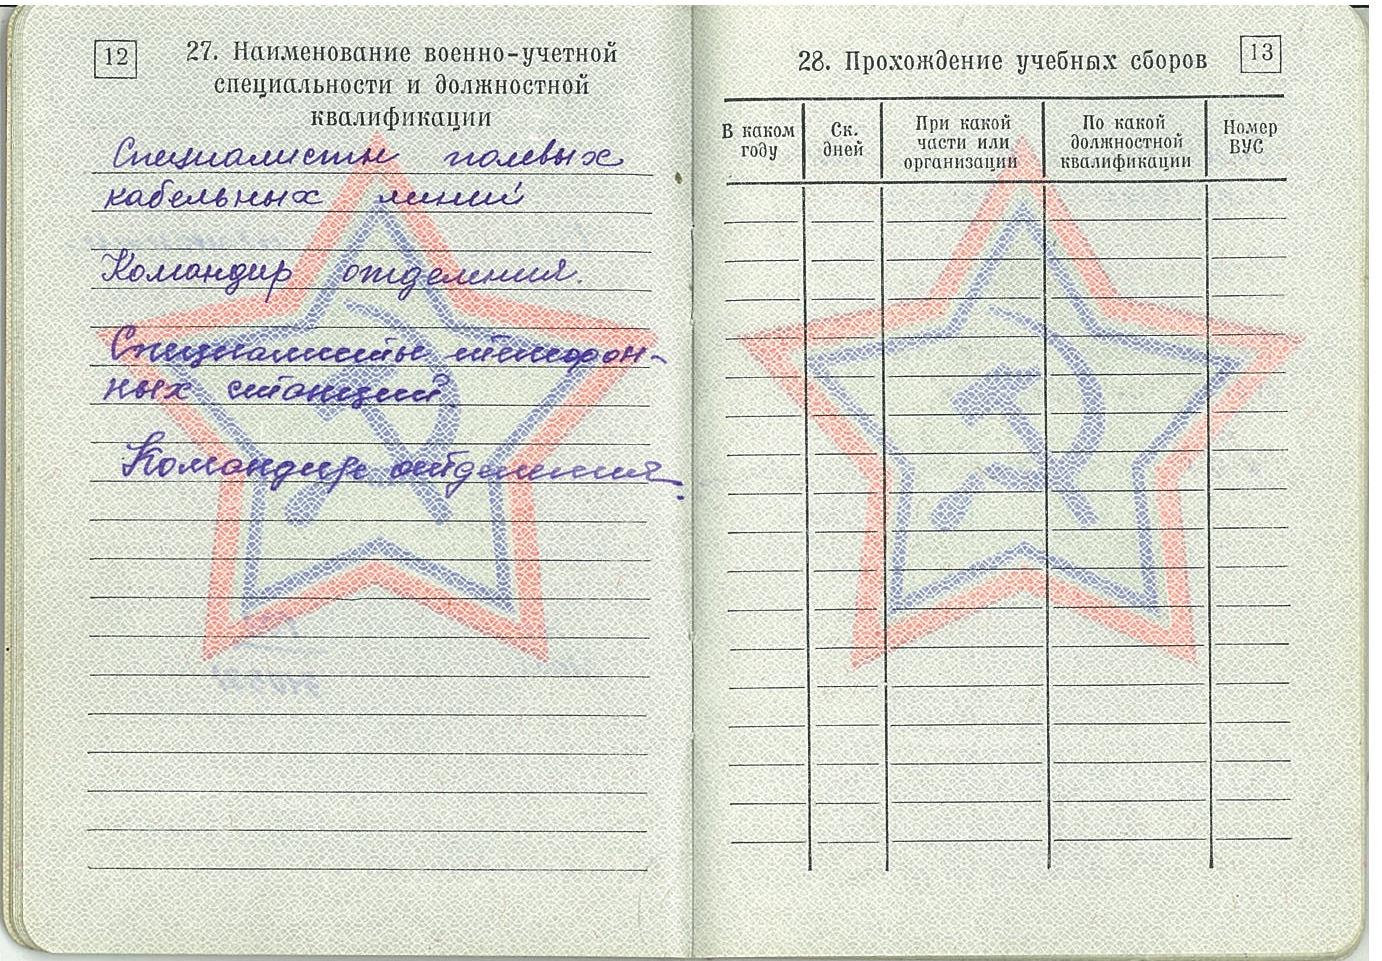 12
27. Наименование военно-учетной
специальности и должностной
квалификации
Специалисты полевых
кабельных линий
Командир отделения.
Специалисты телефон-
ных станций.
Командир отделения.
13
28. Прохождение учебных сборов
В каком
году
Ск.
дней
При какой
части или
организации
По какой
должностной
квалификации
Номер
ВУС